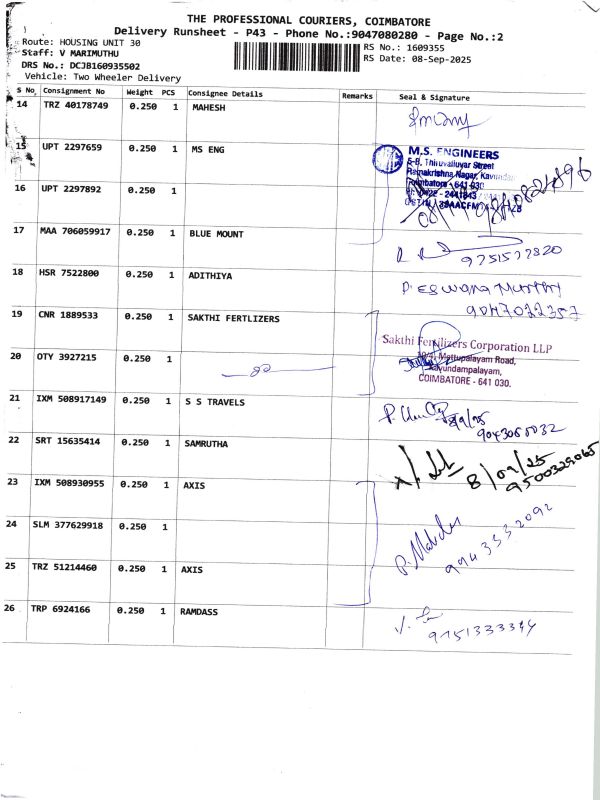 THE PROFESSIONAL COURIERS, COIMBATORE
Delivery Runsheet - P43 - Phone No.:9047080280 - Page No.:2
Route: HOUSING UNIT 30
Staff: V MARIMUTHU
DRS No.: DCJB160935502
Vehicle: Two Wheeler Delivery
RS No.: 1609355
RS Date: 08-Sep-2025
S No Consignment No Weight PCS Consignee Details Remarks Seal & Signature
14 TRZ 40178749 0.250 1 MAHESH
15 UPT 2297659 0.250 1 MS ENG
M.S. ENGINEERS
5-B, Thiruvalluvar Street
Ramakrishna Nagar, Kavundam
Coimbatore - 641 030
16 UPT 2297892 0.250 1
17 MAA 706059917 0.250 1 BLUE MOUNT
9751577820
18 HSR 7522800 0.250 1 ADITHIYA
P. ESWARA MURTHY
9047022357
19 CNR 1889533 0.250 1 SAKTHI FERTLIZERS
Sakthi Fertilizers Corporation LLP
Mettupalayam Road,
Kavundampalayam,
COIMBATORE - 641 030.
20 OTY 3927215 0.250 1
21 IXM 508917149 0.250 1 S S TRAVELS
8/9/25
22 SRT 15635414 0.250 1 SAMRUTHA
8/09/25
9500329065
23 IXM 508930955 0.250 1 AXIS
24 SLM 377629918 0.250 1
9943532092
25 TRZ 51214460 0.250 1 AXIS
26 TRP 6924166 0.250 1 RAMDASS
9751333344